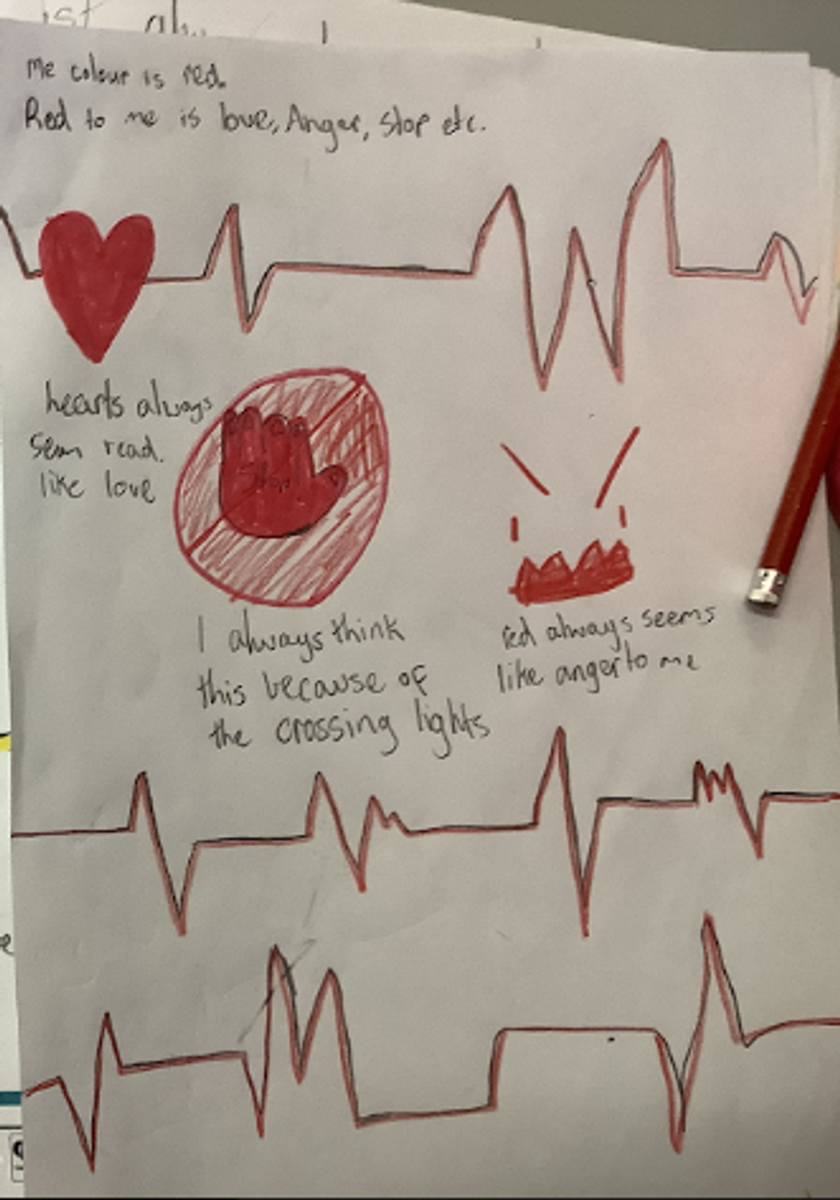 Me colour is red.
Red to me is love, Anger, Stop etc.
hearts always
seem read.
like love
Stop!
I always think
this because of
the crossing lights
red always seems
like anger to me